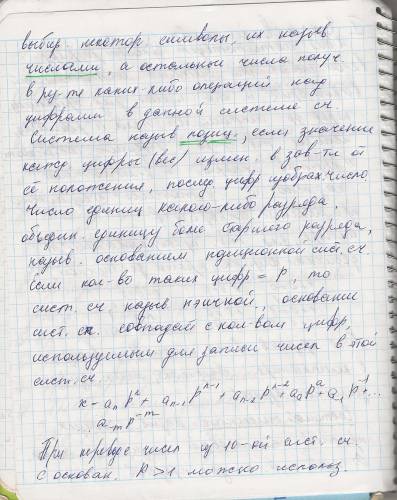 выбир. некотор. символы, их назыв.
числами, а остальные числа получ.
в рез-те каких-либо операций над
цифрами в данной системе сч.
Система назыв. позиц., если значение
кажд. цифры (вес) измен. в зав-ти от
её положения, послед. цифр изобраз. число.
Число единиц какого-либо разряда,
объедин. единицу более старшего разряда,
назыв. основанием позиционной сист. сч.
Если кол-во таких цифр = P, то
сист. сч. назыв. пэичной, основание
сист. сч. совпадает с кол-вом цифр,
используемым для записи чисел в этой
сист. сч.
x = aₙ Pⁿ + aₙ₋₁ Pⁿ⁻¹ + aₙ₋₂ Pⁿ⁻² + a₀ P⁰ + a₋₁ P⁻¹ + ...
a₋ₘ P⁻ᵐ
При переводе чисел из 10-ой сист. сч.
с основан. P > 1 можно использ.